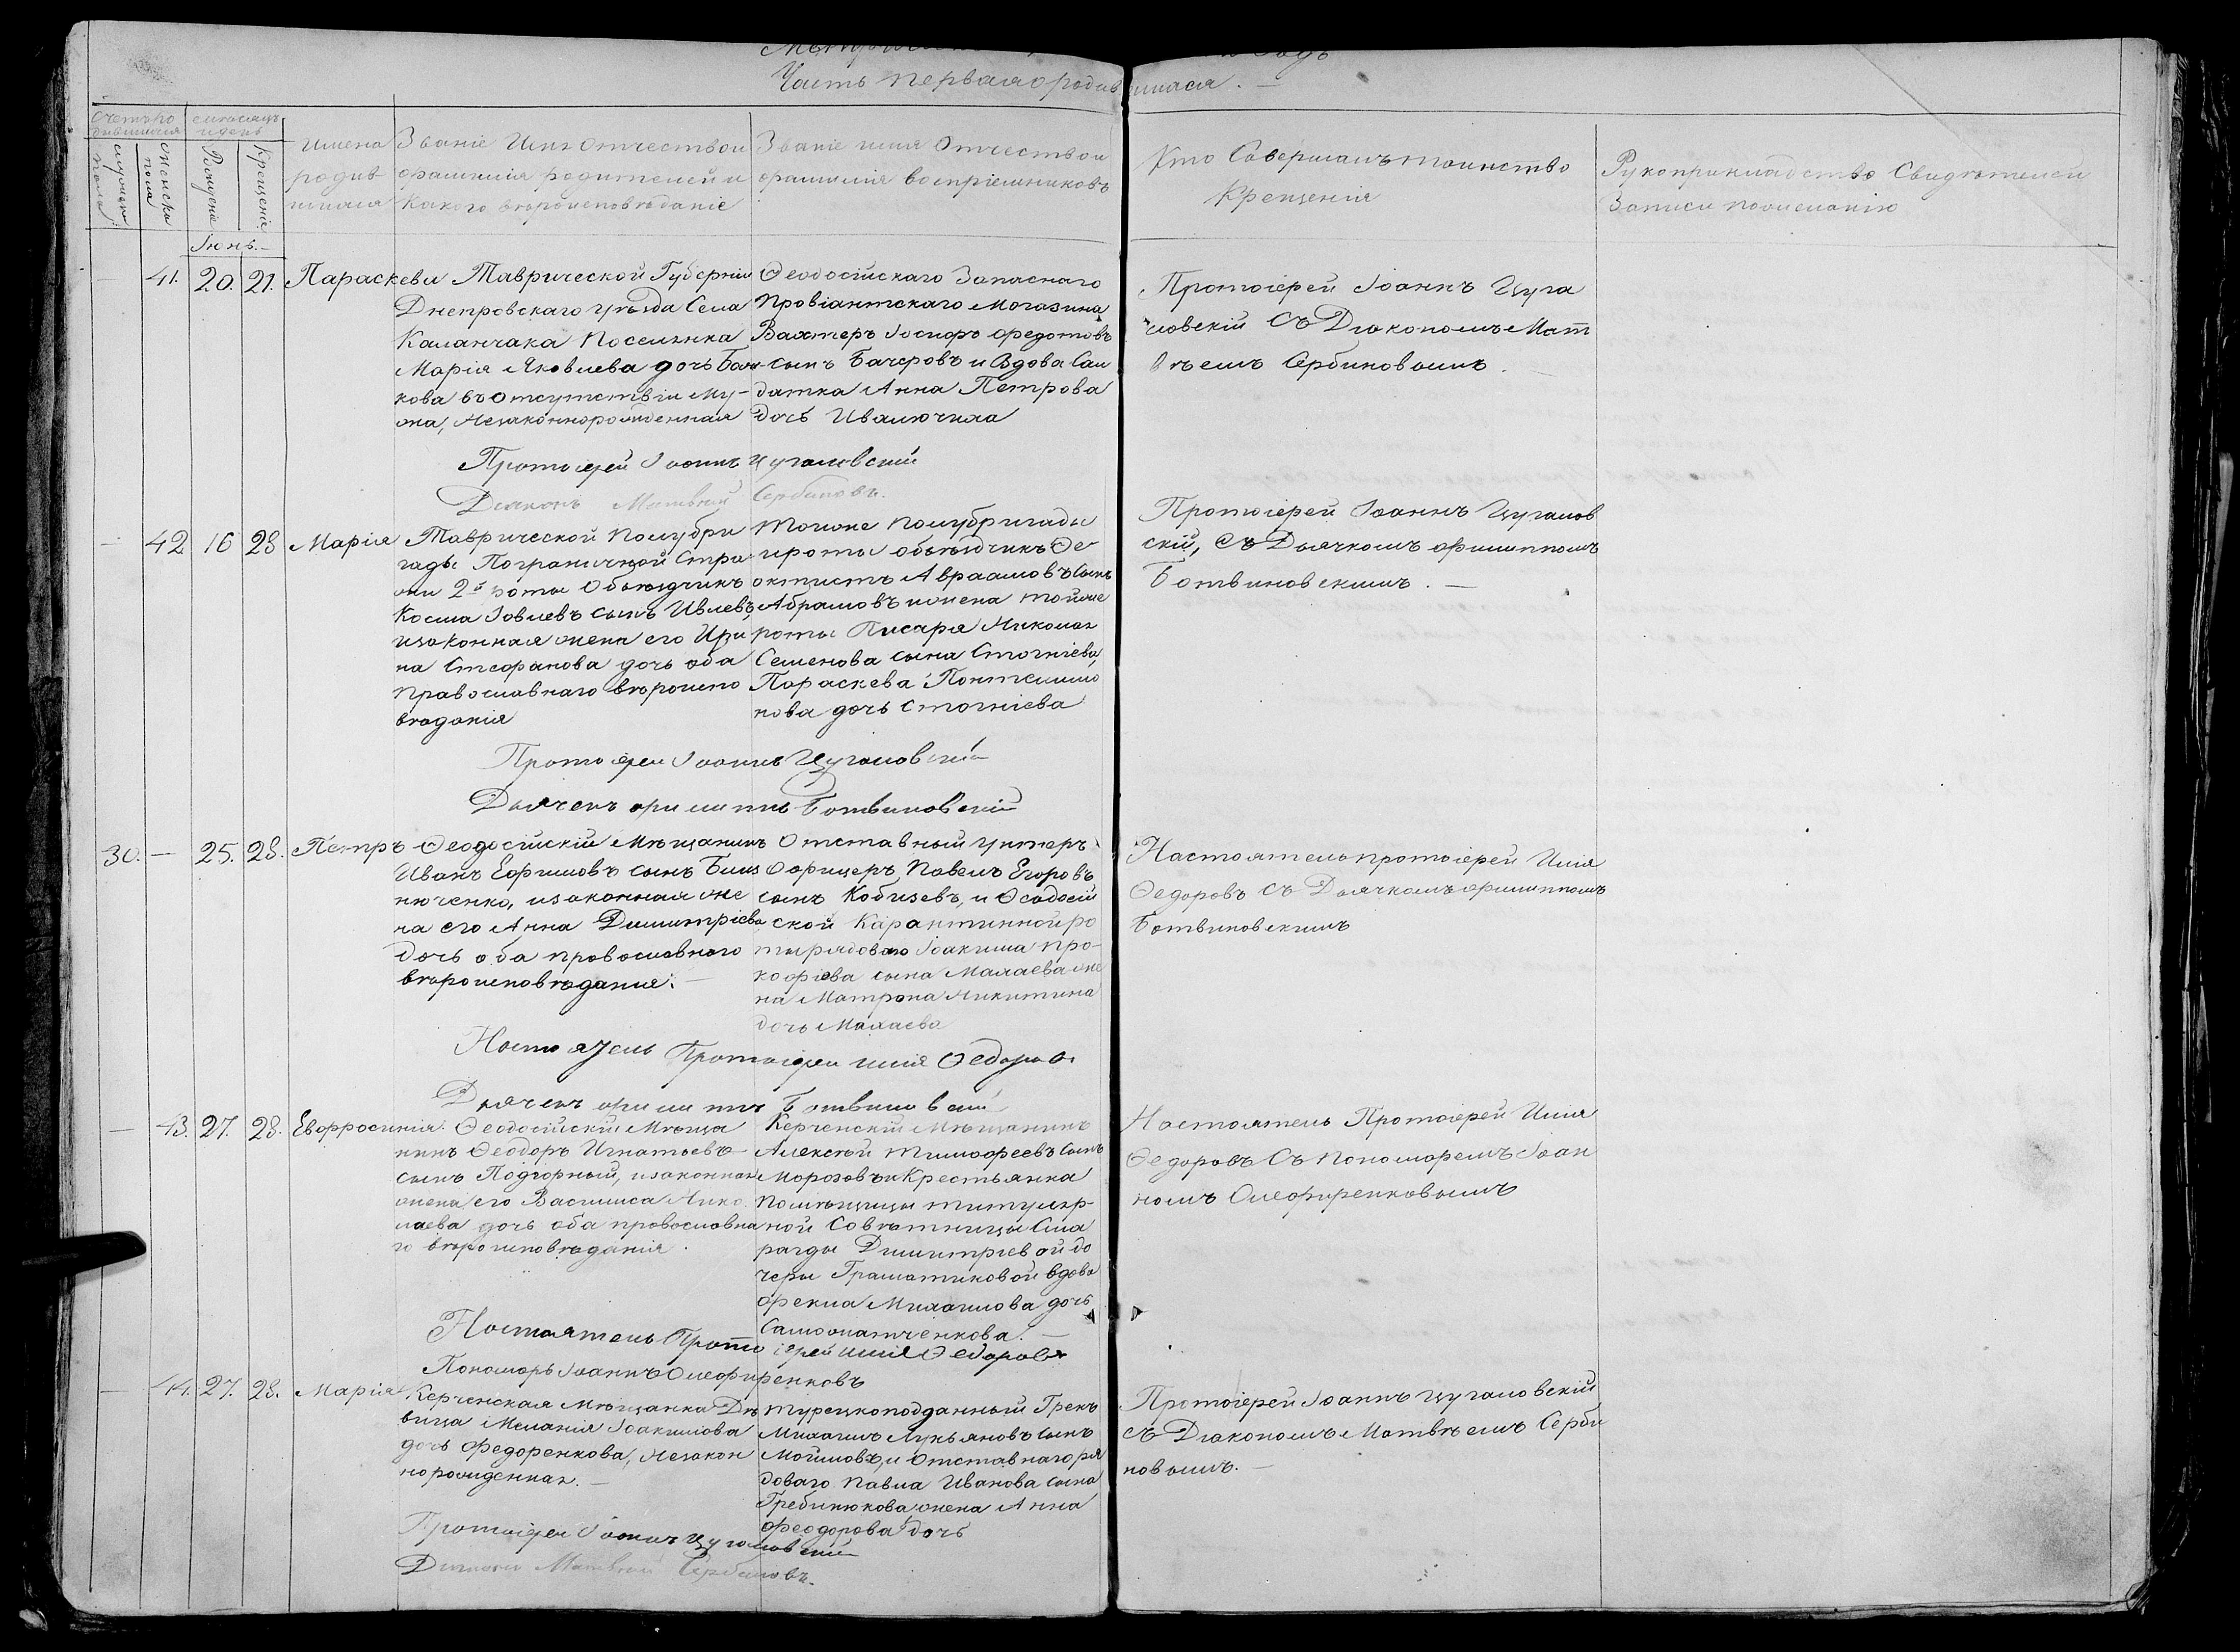 Часть перваяо родившихся. —
Счетъ ро
дившихся
мѣсяцъ
и день
мужеска
пола
женска
пола
Рожденіе
Крещеніе
Имена
родив
шихся
Званіе Имя Отчествои
фамилія родителей и
Какого вѣроисповѣданіе
Званіе имя Отчествои
фамилія воспріемниковъ
Кто Совершалъ таинство
Крещенія
Рукоприкладство Свидѣтелей
Записи пожеланію
Іюнь. —
— 41. 20. 21. Параскева
Таврической Губерніи
Днепровскаго уѣзда Села
Каланчака Поселянка
Марія Яковлева дочь Бан
кова въ отсутствіи му-
жа, Незаконнорожденная
Ѳеодосійскаго Запаснаго
Провіантскаго Могазина
Вахтеръ Іосифъ Федотовъ
сынъ Бачеровъ и Вдова Сол
датка Анна Петрова
дочь Ивалючиха
Протоіерей Іоаннъ Цуга
ловскій Съ Діакономъ Мат
вѣемъ Сербиновымъ.
Протоіерей Іоаннъ Цугаловскій
Діаконъ Матвѣй Сербиновъ.
— 42 16 28 Марія
Таврической Полубри
гады Пограничной Стра
жи 2й роты Объѣздчикъ
Косма Іовлевъ сынъ Ивлевъ,
изаконная жена его Ири
на Стефанова дочь оба
Православнаго вѣроиспо
вѣданія
Тогоже полубригады
ироты объѣздчикъ Ѳе-
октистъ Авраамовъ Сынъ
Абрамовъ ижена тойже
роты Писаря Николая
Семенова сына Стогніева,
Параскева Пантелимо
нова дочь Стогніева
Протоіерей Іоаннъ Цугалов
скій, Съ Дьячкомъ Филиппомъ
Ботвиновскимъ. —
Протоіерей Іоаннъ Цугаловскій
Дьячекъ Филиппъ Ботвиновскій
30. — 25. 28. Петръ
Ѳеодосійскій Мѣщанинъ
Иванъ Ефимовъ сынъ Близ
нюченко, изаконная же
на его Анна Димитріева
дочь оба провославного
вѣроисповѣдания. —
Отставный Унтеръ
Офицеръ Павелъ Егоровъ
сынъ Кобизевъ, и Ѳеодосій
ской Карантинной ро
ты рядового Іоакима Про-
кофіева сына Малаева же
на Матрона Никитина
дочь Малаева
Настоятель протоіерей Илія
Ѳедоровъ Съ Дьячкомъ Филиппомъ
Ботвиновскимъ
Настоятель Протоіерей Илія Ѳедоровъ
Дьячекъ Филиппъ Ботвиновскій
— 43. 27. 28. Евфросинія.
Ѳеодосійскій Мѣща
нинъ Ѳеодоръ Игнатьевъ
сынъ Подгорный, изаконная
жена его Василиса Нико
лаева дочь оба провославна
го вѣроисповѣданія.
Керченскій Мѣщанинъ
Алексѣй Тимофеевъ Сынъ
Морозовъ и Крестьянка
Помѣщицы титуляр-
ной Совѣтницы Сма
рагды Димитріевой до
чери Граматиковой вдова
Фекла Михаилова дочь
Самойлатченкова. —
Настоятель Протоіерей Илія
Ѳедоровъ Съ Пономоремъ Іоан
номъ Олефиренковымъ
Настоятель Протоіерей Илія Ѳедоровъ
Пономорь Іоаннъ Олефиренковъ
— 44. 27. 28. Марія
Керченская Мѣщанка Дѣ
вица Меланія Іоакимова
дочь Федоренкова, Незакон
норожденная. —
Турецкоподданный Грекъ
Михаилъ Лукьяновъ Сынъ
Моймовъ, и Отставнаго ря
доваго Павла Иванова сына
Гребинюкова жена Анна
Феодорова дочь
Протоіерей Іоаннъ Цугаловскій
съ Діакономъ Матвѣемъ Серби
новымъ. —
Протоіерей Іоаннъ Цугаловскій
Діаконъ Матвѣй Сербиновъ.